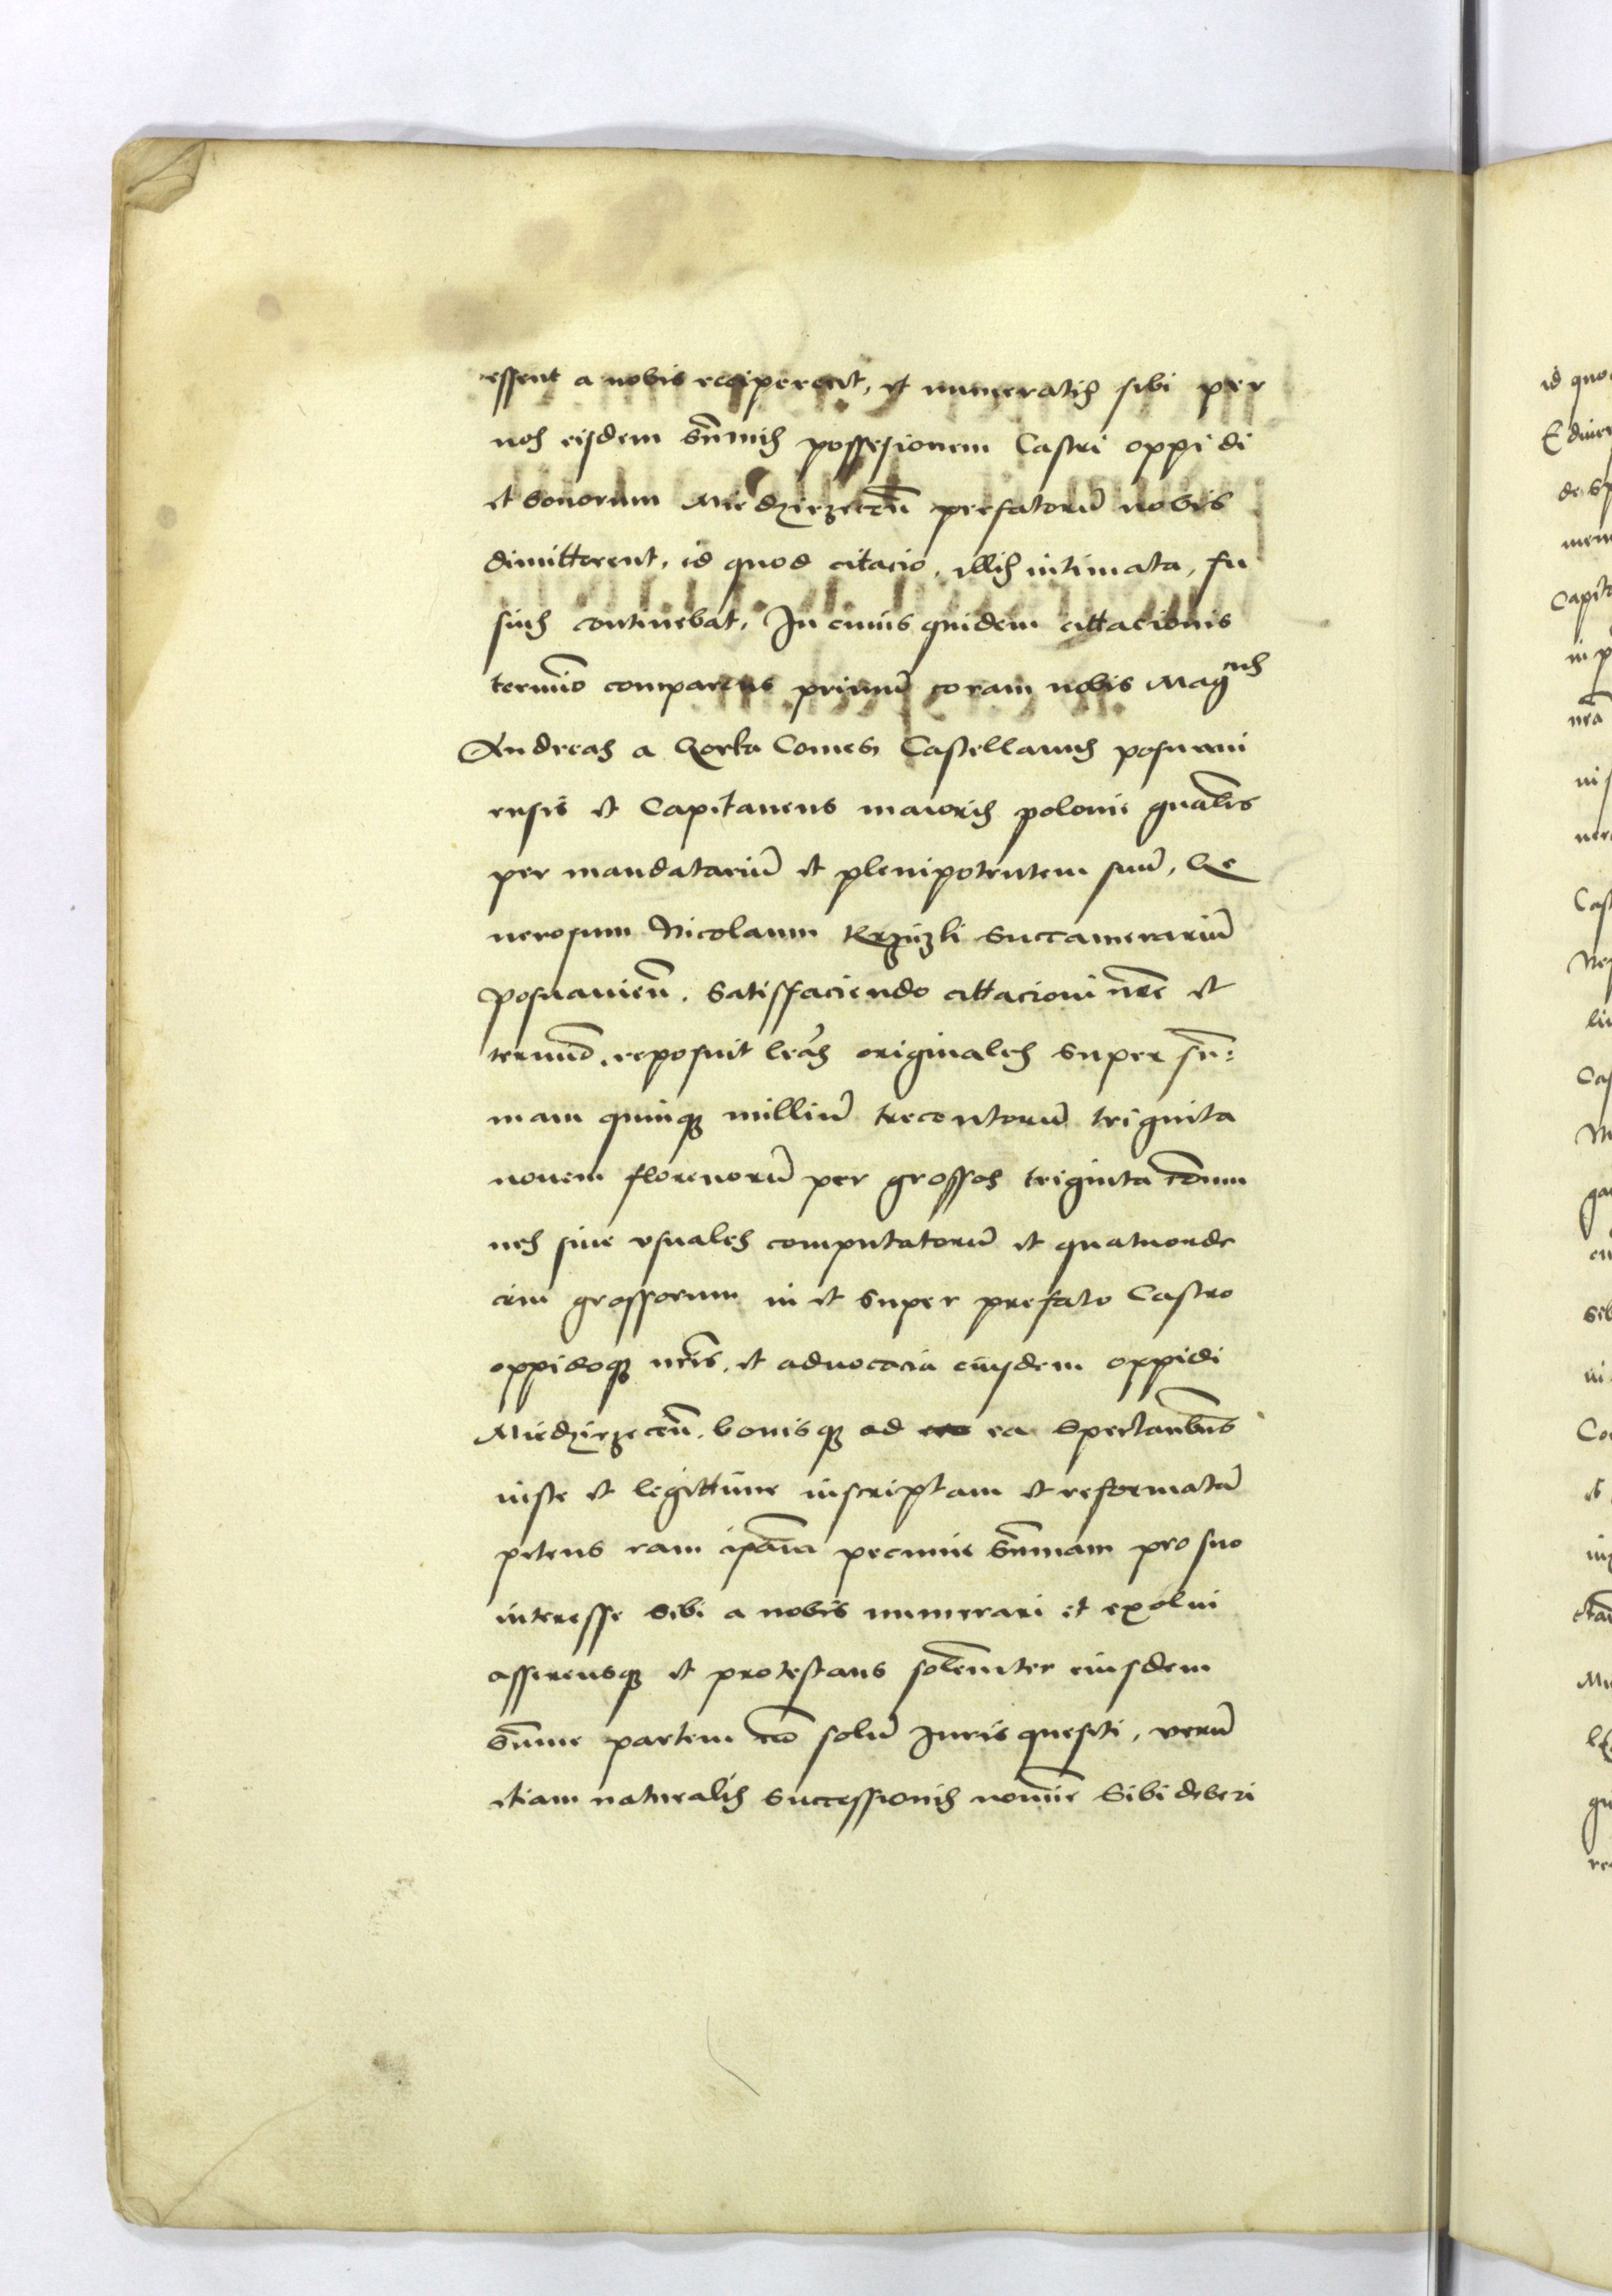 essent a nobis reciperent, et numeratis sibi per
nos eisdem sum̄mis possesionem Castri oppidi
et bonorum Miedzirzeceñ prefatorū nobis
dimitterent, id quod citacio, illis intimata, fu
sius continebat, In cuius quidem cittacionis
termīo comparens primū coram nobis Mag^cus
Andreas a Gorka Comes, Castellanus posnani
ensis et Capitaneus maioris polonie gnālis
per mandatariū et plenipotentem suū, Ge
nerosum Nicolaum succamerariū
posnanieñ. satisfaciendo cittacioni nr̄e et
termīo, reposuit lrās originales super sū:
mam quinq̢ milliū trecentorū triginta
novem florenorū per grossos triginta cōmu
nes sive usuales computatorū et quatuorde
cim grossorum in et super prefato Castro
oppidoq̢ nr̄is, et advocacia eiusdem oppidi
Miedzirzeceñ, bonisq̢ ad ea spectantibꝰ
iuste et legittime inscriptam et reformatā
petens eam ip̄am pecunie sum̄mam pro suo
interesse sibi a nobis numerari et exolui
asserensq̢ et protestans solēniter eiusdem
sum̄me partem nō solū Juris quesiti, verū
etiam naturalis successionis nomīe sibi deberi